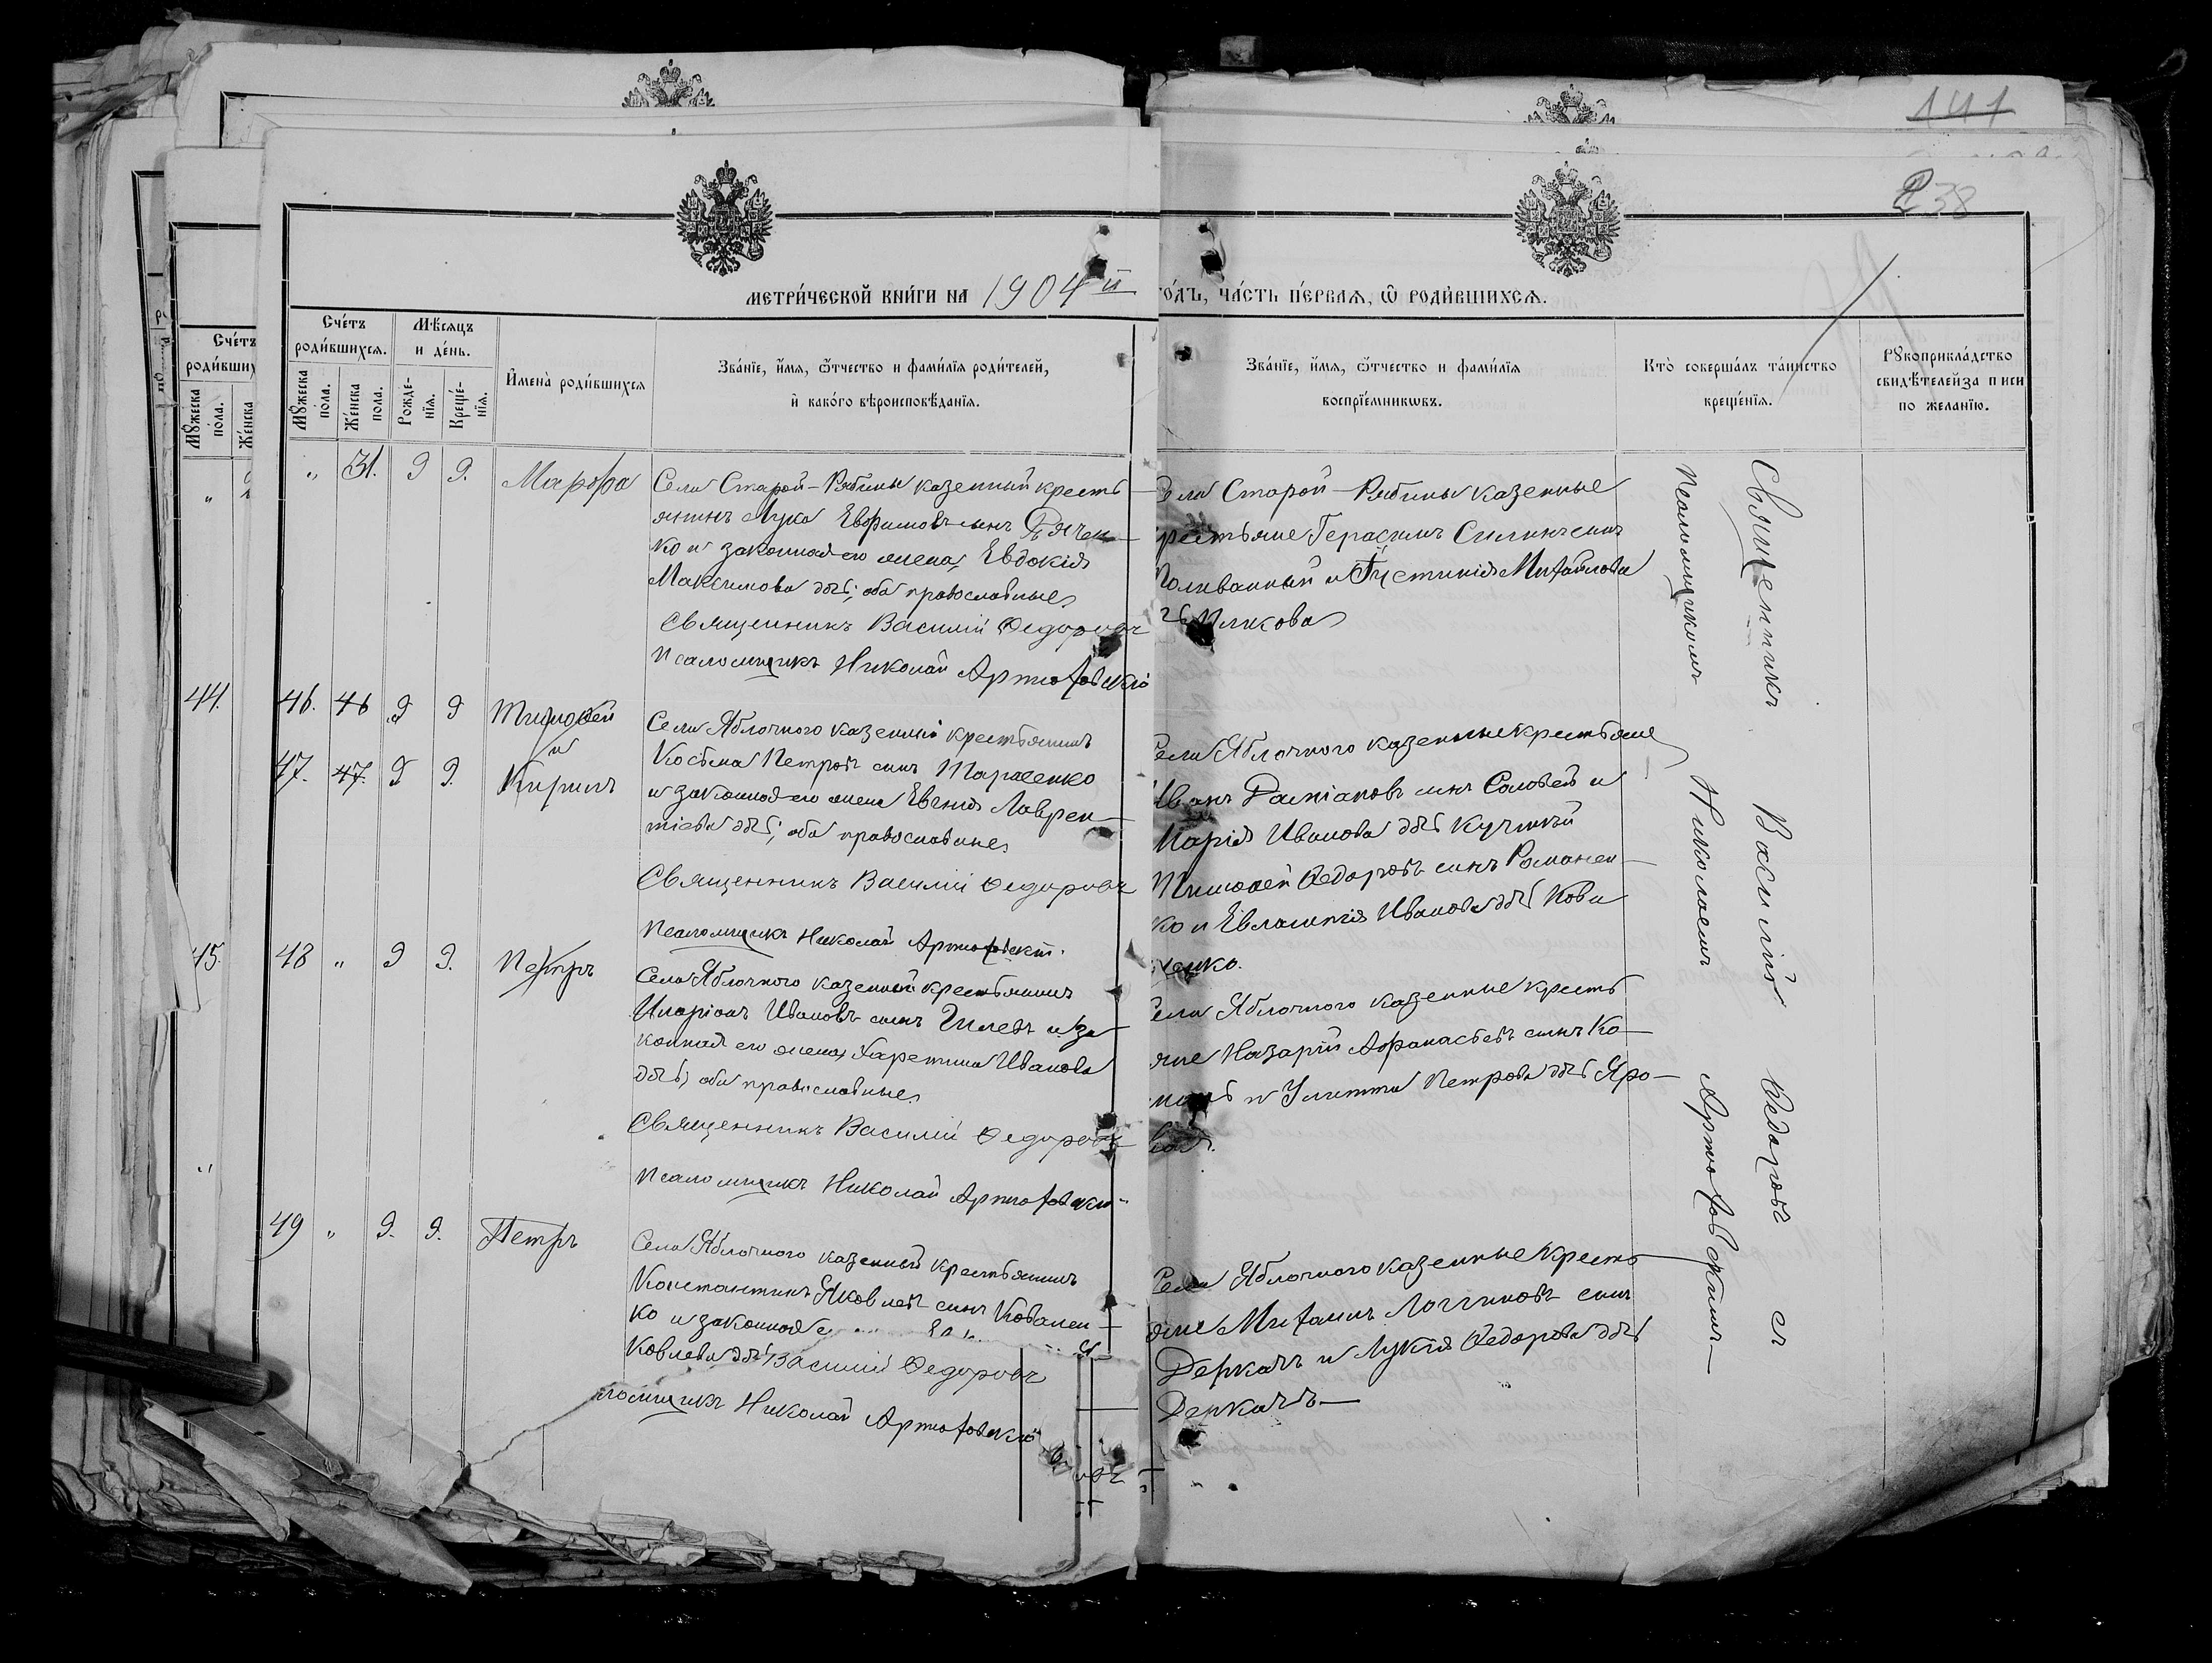 141
238
МЕТРИЧЕСКОЙ КНИГИ НА 1904й ГОДЪ, ЧАСТЬ ПЕРВАЯ, Ѡ РОДИВШИХСЯ.
Счетъ родившихся.
Мужеска пола.
Женска пола.
Мѣсяцъ и день.
Рожденія.
Крещенія.
Имена родившихся
Званіе, имя, отчество и фамилія родителей,
и какого вѣроисповѣданія.
Званіе, имя, отчество и фамилія
воспріемниковъ.
Кто совершалъ таинство
крещенія.
Рукоприкладство
свидѣтелей записи
по желанію.
„ 31. 9 9. Марфа
Села Старой-Рябины казенный кресть
янинъ Лука Евфимовъ сынъ Дячен-
ко и законная его жена Евдокія
Максимова дчь; оба православные
Священникъ Василій Ѳедоровъ
Псаломщикъ Николай Артюховскій
Села Старой-Рябины казенные
крестьяне Герасимъ Силинъ сынъ
Поливанный и Іустинія Михайлова
44.
46. 46 9 9 Тимоѳей
и
47. 47. 9 9. Кирилъ
Села Яблочного казенный крестьянинъ
Косьма Петровъ сынъ Тарасенко
и законная его жена Евгенія Лаврен-
тіева дчь; оба православные
Священникъ Василій Ѳедоровъ
Псаломщикъ Николай Артюховскій.
Села Яблочного казенные крестьяне
Иванъ Даміановъ сынъ Соловей и
Марія Иванова дчь Куч
Тимоѳей Ѳедоровъ сынъ Романен-
ко и Евлампія Иванова дчь Кова
ленко.
45.
48 „ 9 9. Петръ
Села Яблочного казенный крестьянинъ
Иларіонъ Ивановъ сынъ и за-
конная его жена Харетина Иванова
дчь; оба православные
Священникъ Василій Ѳедоровъ
Псаломщикъ Николай Артюховскій
Села Яблочного казенные кресть
яне Назарій Афанасьевъ сынъ Ко-
и Улитта Петрова дчь Яро-
вая.
„
49 „ 9. 9. Петръ
Села Яблочного казенный крестьянинъ
Константинъ Яковлевъ сынъ Ковален-
ко и законная
ковлева дчь Василій Ѳедоровъ
ломщикъ Николай Артюховскій
Села Яблочного казенные кресть
яне Михаилъ Логгиновъ сынъ
Деркачъ и Лукія Ѳедорова дчь
Деркачъ-
Священникъ Василій Ѳедоровъ съ
Псаломщикомъ Николаемъ Артюховскимъ-